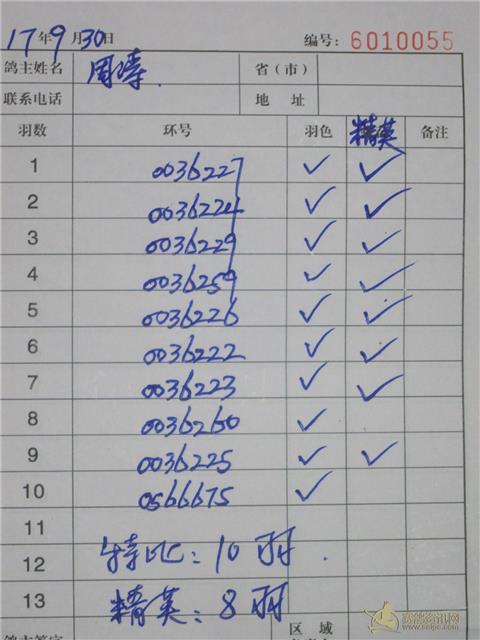 17年9月30日 编号: 6010055
鸽主姓名 周涛 省(市)
联系电话 地址
羽数 环号 羽色 精英 备注
1 0036227 ✓ ✓
2 0036224 ✓ ✓
3 0036229 ✓ ✓
4 0036259 ✓ ✓
5 0036226 ✓ ✓
6 0036222 ✓ ✓
7 0036223 ✓ ✓
8 0036260 ✓
9 0036225 ✓ ✓
10 0566675 ✓
11
12 特比: 10羽.
13 精英: 8羽
鸽主签字 区域